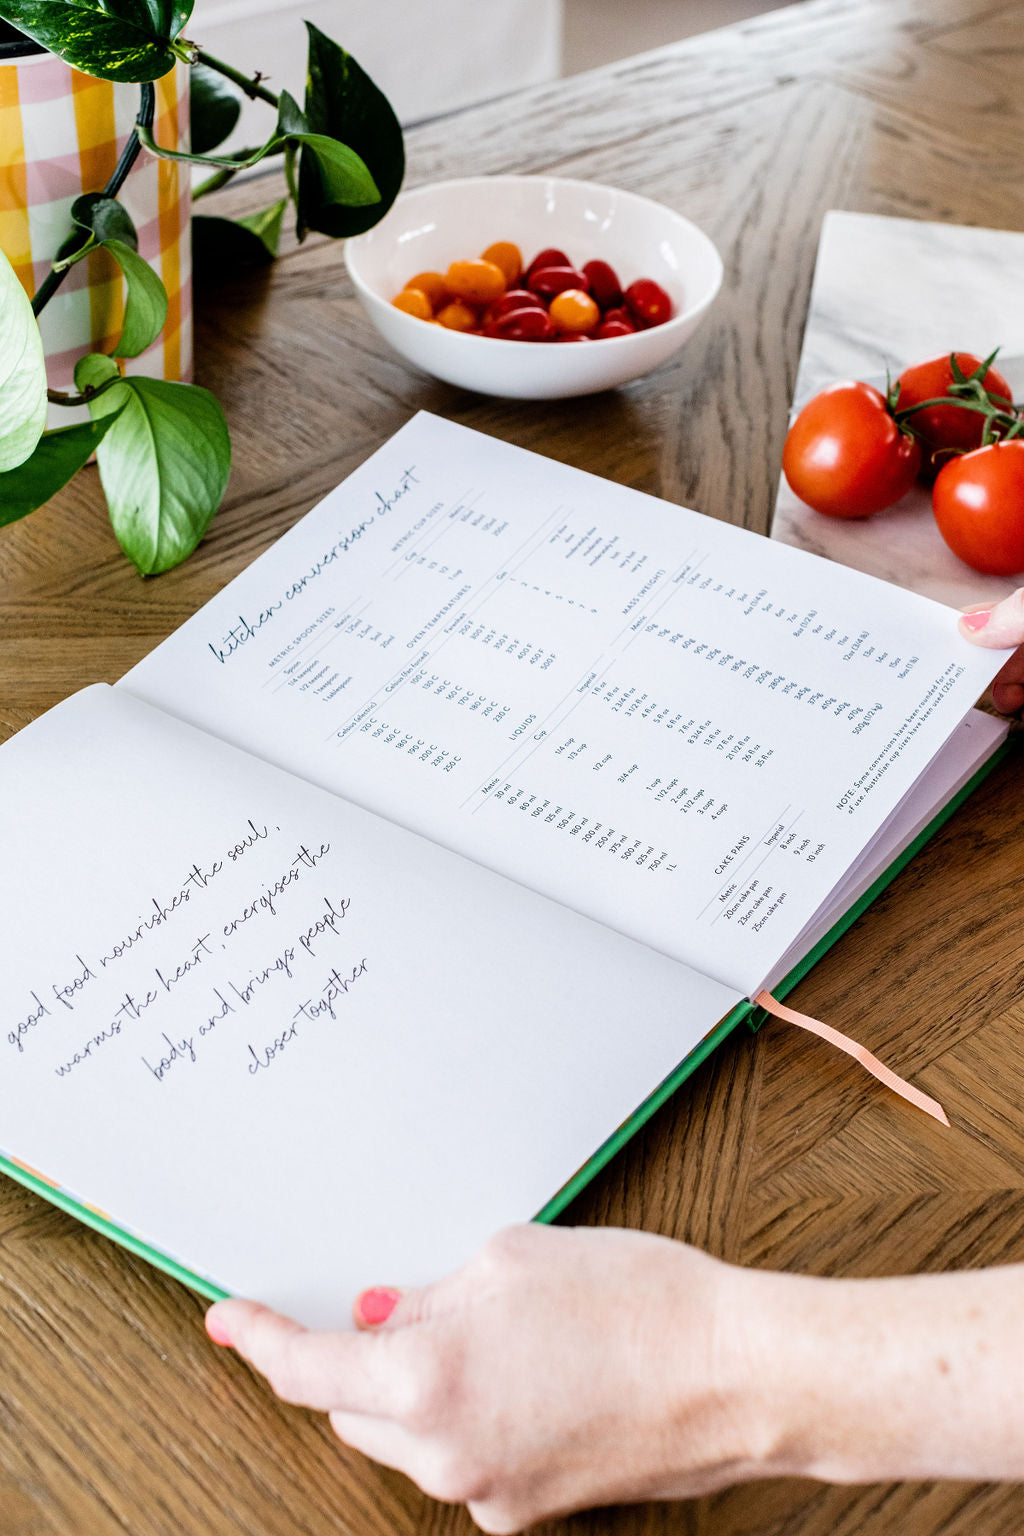 good food nourishes the soul,
warms the heart, energises the
body and brings people
closer together
kitchen conversion chart
METRIC SPOON SIZES
Spoon Metric
1/4 teaspoon 1.25ml
1/2 teaspoon 2.5ml
1 teaspoon 5ml
1 tablespoon 20ml
METRIC CUP SIZES
Cup Metric
1/4 60ml
1/3 80ml
1/2 125ml
1 cup 250ml
OVEN TEMPERATURES
Celsius (electric) Celsius (fan forced) Farenheit Gas
120 C 100 C 250 F 1 very slow
150 C 130 C 300 F 2 slow
160 C 140 C 325 F 3 moderately slow
180 C 160 C 350 F 4 moderate
190 C 170 C 375 F 5 moderately hot
200 C 180 C 400 F 6 hot
230 C 210 C 450 F 7 very hot
250 C 230 C 500 F 9 very hot
LIQUIDS
Metric Cup Imperial
30 ml 1 fl oz
60 ml 1/4 cup 2 fl oz
80 ml 1/3 cup 2 3/4 fl oz
100 ml 3 1/2 fl oz
125 ml 1/2 cup 4 fl oz
150 ml 5 fl oz
180 ml 3/4 cup 6 fl oz
200 ml 7 fl oz
250 ml 1 cup 8 3/4 fl oz
375 ml 1 1/2 cups 13 fl oz
500 ml 2 cups 17 fl oz
625 ml 2 1/2 cups 21 1/2 fl oz
750 ml 3 cups 26 fl oz
1 L 4 cups 35 fl oz
MASS (WEIGHT)
Metric Imperial
10g 1/4oz
15g 1/2oz
30g 1oz
60g 2oz
90g 3oz
125g 4oz (1/4 lb)
155g 5oz
185g 6oz
220g 7oz
250g 8oz (1/2 lb)
280g 9oz
315g 10oz
345g 11oz
375g 12oz (3/4 lb)
410g 13oz
440g 14oz
470g 15oz
500g (1/2 kg) 16oz (1 lb)
CAKE PANS
Metric Imperial
20cm cake pan 8 inch
23cm cake pan 9 inch
25cm cake pan 10 inch
NOTE: Some conversions have been rounded for ease
of use. Australian cup sizes have been used (250 ml).